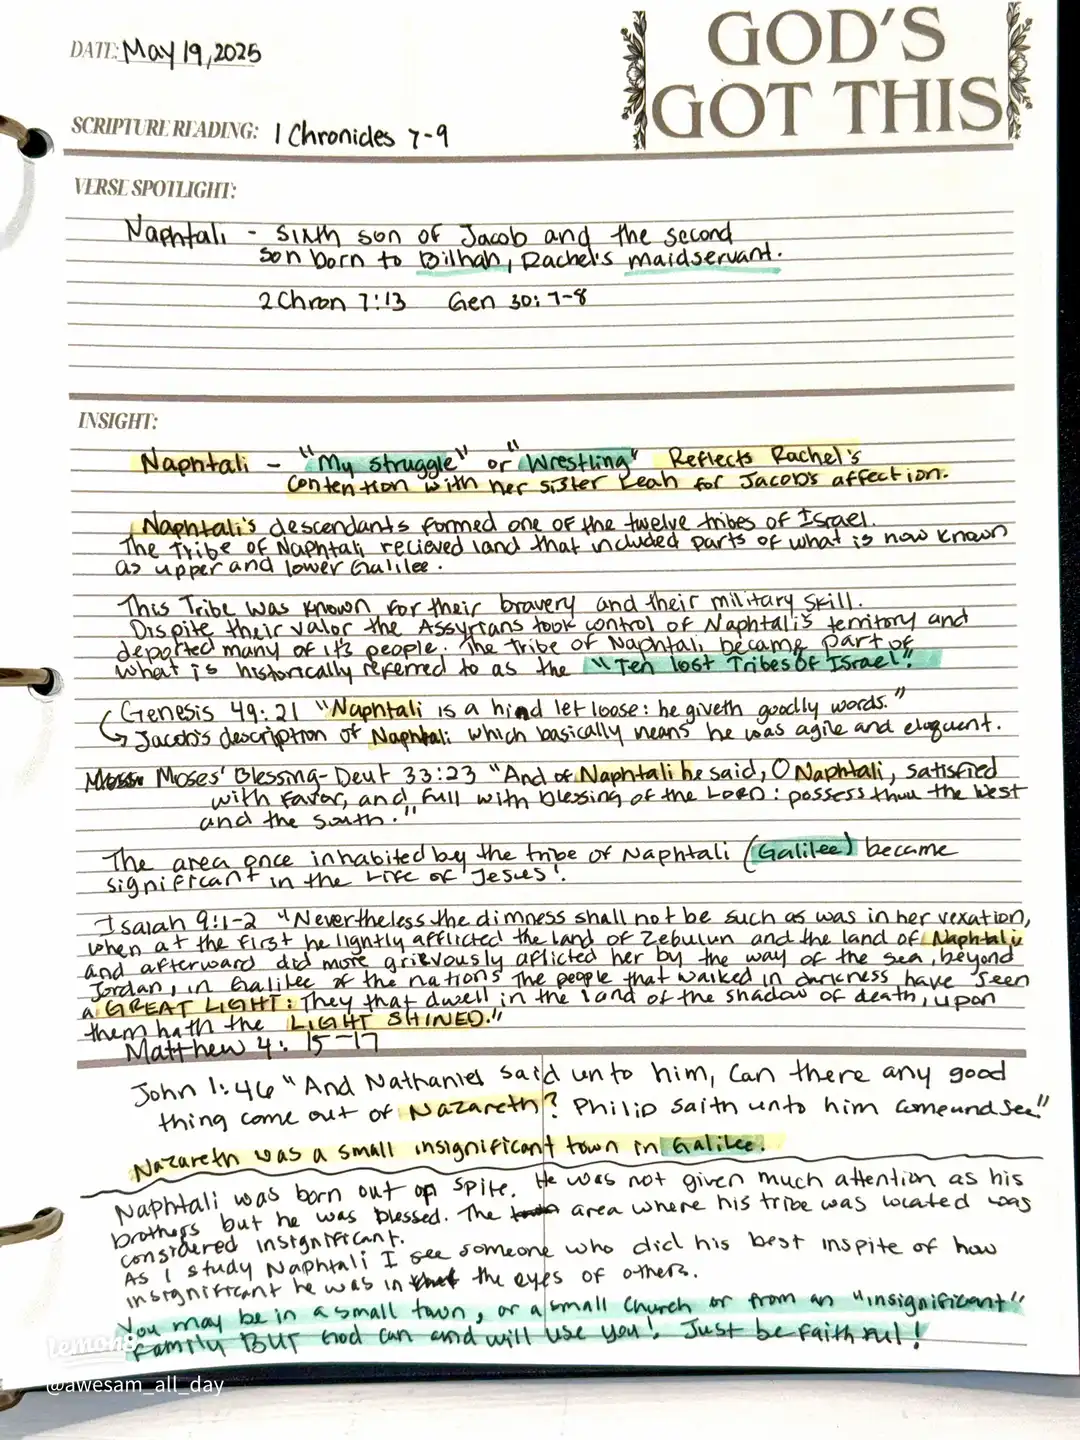 DATE: May 19, 2025
GOD'S
GOT THIS
SCRIPTURE READING: 1 Chronicles 7-9
VERSE SPOTLIGHT:
Naphtali - Sixth son of Jacob and the second
son born to Bilhah, Rachel's maidservant.
2 Chron 7:13 Gen 30:7-8
INSIGHT:
Naphtali - "My struggle" or "Wrestling" Reflects Rachel's
contention with her sister Leah for Jacob's affection.
Naphtali's descendants formed one of the twelve tribes of Israel.
The Tribe of Naphtali recieved land that included parts of what is now known
as upper and lower Galilee.
This Tribe was known for their bravery and their military skill.
Dispite their valor the Assyrians took control of Naphtali's territory and
deported many of it's people. The Tribe of Naphtali became part of
what is historically referred to as the "Ten lost Tribes of Israel".
Genesis 49:21 "Naphtali is a hind let loose: he giveth goodly words."
Jacob's description of Naphtali which basically means he was agile and eloquent.
Moses' Blessing - Deut 33:23 "And of Naphtali he said, O Naphtali, satisfied
with favor, and full with blessing of the LORD: possess thou the West
and the south."
The area once inhabited by the tribe of Naphtali (Galilee) became
significant in the Life of Jesus!
Isaiah 9:1-2 "Nevertheless the dimness shall not be such as was in her vexation,
when at the first he lightly afflicted the land of Zebulun and the land of Naphtali
and afterward did more grievously aflicted her by the way of the sea, beyond
Jordan, in Galilee of the nations The people that walked in darkness have seen
a GREAT LIGHT: They that dwell in the land of the shadow of death, upon
them hath the LIGHT SHINED."
Matthew 4: 15-17
John 1:46 "And Nathaniel said unto him, Can there any good
thing come out of Nazareth? Philip saith unto him come and see"
Nazareth was a small insignificant town in Galilee.
Naphtali was born out of spite. He was not given much attention as his
brothers but he was blessed. The area where his tribe was located was
considered insignificant.
As I study Naphtali I see someone who did his best inspite of how
insignificant he was in the eyes of others.
You may be in a small town, or a small church or from an "insignificant"
family BUT God can and will use you! Just be faithful!
lemon8
@awesam_all_day